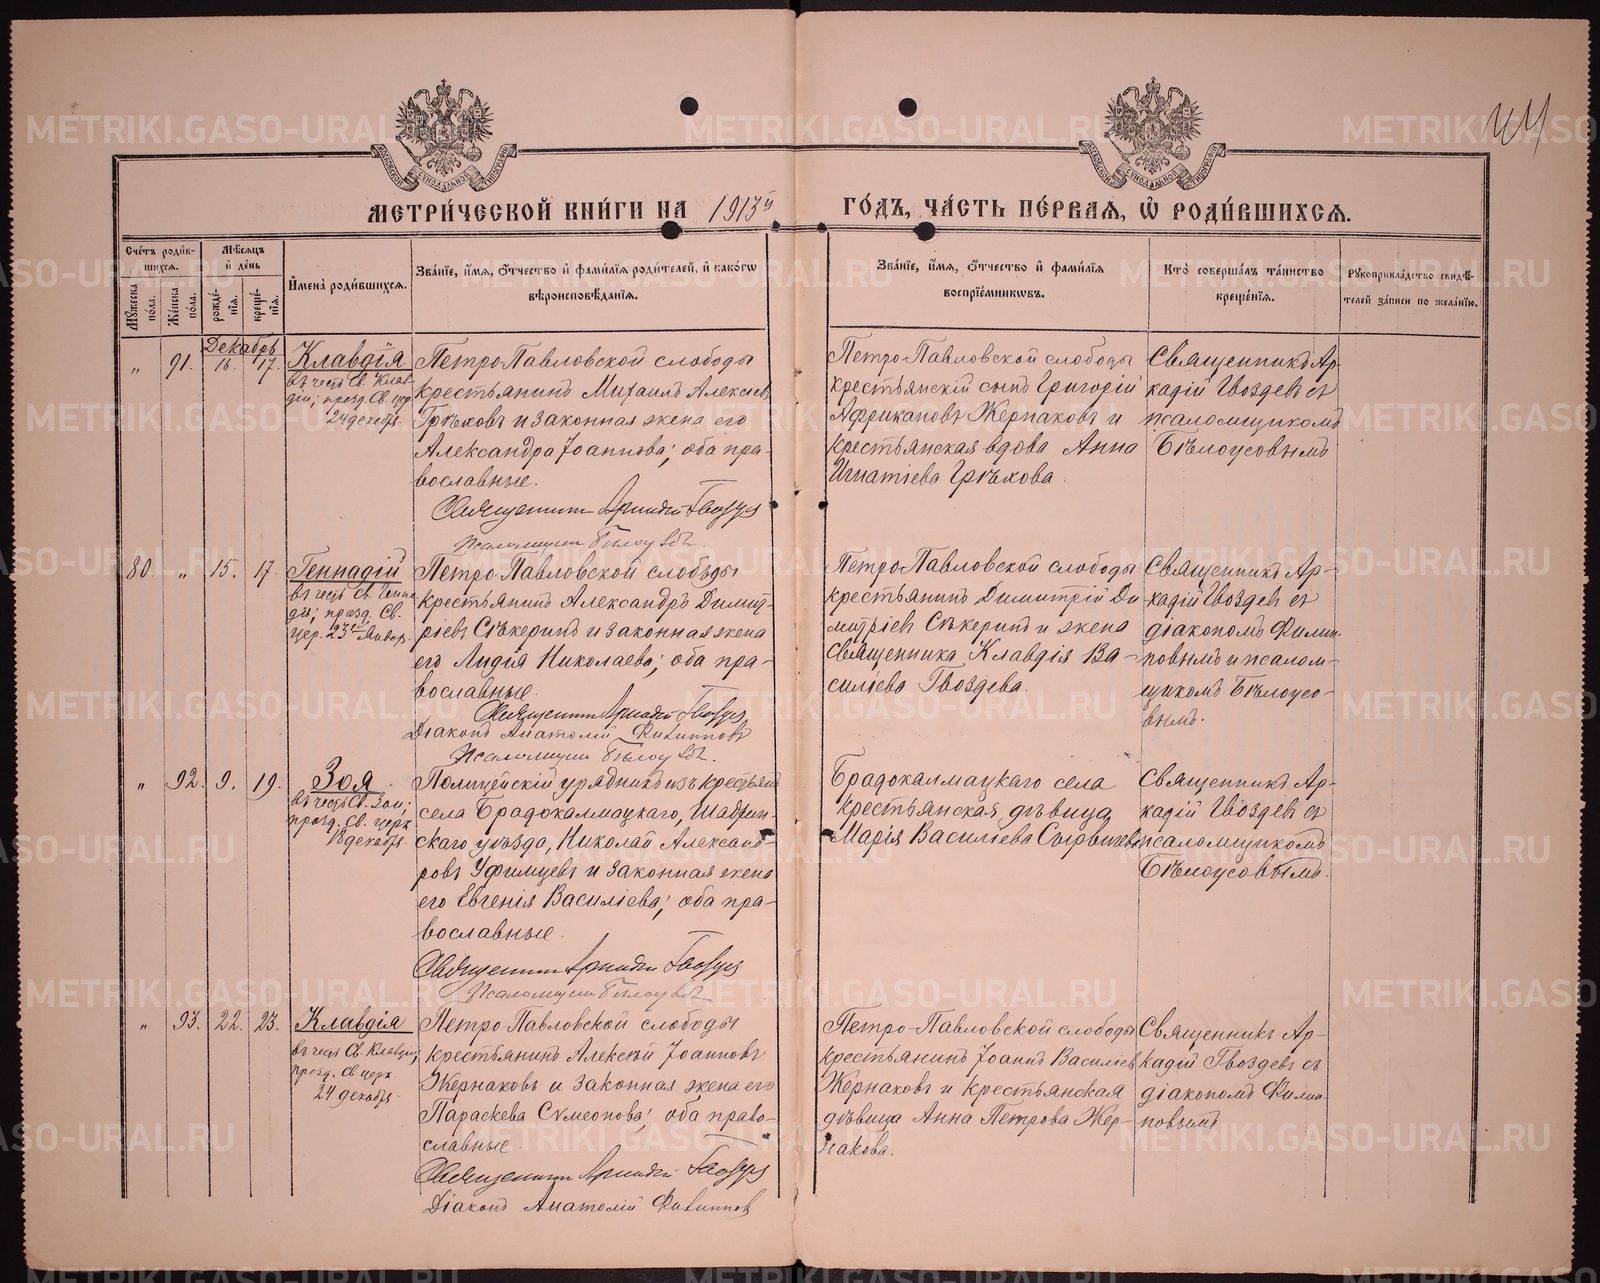 44
МЕТРИ́ЧЕСКОЙ КНИ́ГИ НА 1913й ГО́ДЪ, ЧА́СТЬ ПЕ́РВАЯ, Ѡ҆ РОДИ́ВШИХСЯ.
Сче́тъ роди́в-
шихся.
Мꙋ́жеска пола.
Же́нска пола.
Мѣ́сяцъ
и҆ де́нь
рожде́-
нїя.
креще́-
нїя.
И҆мена̀ роди́вшихся.
Зва́нїе, и҆́мя, ѻ҆́тчество и҆ фами́лїя роди́телей, и҆ како́гѡ
вѣроисповѣ́данїя.
Зва́нїе, и҆́мя, ѻ҆́тчество и҆ фами́лїя
воспрїе́мникѡвъ.
Кто̀ соверша́лъ та́инство
креще́нїя.
Рꙋкоприкла́дство свидѣ́-
телей за́писи по жела́нїю.
Декабрь
" 91. 16. 17.
Клавдія
въ честь Св. Клав-
діи; празд. Св. цер
24 декабря.
Петро-Павловской слободы
крестьянинъ Михаилъ Алексѣев
Грѣховъ и законная жена его
Александра Іоаннова; оба пра-
вославные.
Священникъ Аркадій Гвоздев
Псаломщик Бѣлоусов.
Петро-Павловской слободы
крестьянскій сынъ Григорій
Африкановъ Жернаковъ и
крестьянская вдова Анна
Игнатіева Грѣхова.
Священникъ Ар-
кадій Гвоздевъ съ
псаломщикомъ
Бѣлоусовымъ
80. " 15. 17.
Геннадій
въ честь Св. Генна
дія; празд. Св.
цер. 23го Января.
Петро-Павловской слободы
крестьянинъ Александръ Димит-
ріевъ Сѣкеринъ и законная жена
его Лидія Николаева; оба пра-
вославные.
Священникъ Аркадій Гвоздев
Діаконъ Анатолій Филипповъ
Псаломщик Бѣлоусов.
Петро-Павловской слободы
крестьянинъ Димитрій Ди
митріевъ Сѣкеринъ и жена
священника Клавдія Ва-
силіева Гвоздева.
Священникъ Ар-
кадій Гвоздевъ съ
діакономъ Филип-
повымъ и псалом-
щикомъ Бѣлоусо-
вымъ.
" 92. 9. 19.
Зоя
въ честь Св. Зои;
празд. Св. церк
18 декабря.
Полицейскій урядникъ изъ крестьянъ
села Бродокалмацкаго, Шадрин-
скаго уѣзда, Николай Александ-
ровъ Уфимцевъ и законная жена
его Евгенія Василіева; оба пра-
вославные.
Священникъ Аркадій Гвоздев
Псаломщик Бѣлоусов
Бродокалмацкаго села
крестьянская дѣвица
Марія Василіева
Священникъ Ар-
кадій Гвоздевъ съ
псаломщикомъ
Бѣлоусовымъ.
" 93. 22. 23.
Клавдія
въ честь Св. Клавдіи,
празд. Св. церк.
24 декабря.
Петро-Павловской слободы
крестьянинъ Алексѣй Іоанновъ
Жернаковъ и законная жена его
Параскева Сѵмеонова; оба право-
славные.
Священникъ Аркадій Гвоздев
Діаконъ Анатолій Филиппов
Петро-Павловской слободы
крестьянинъ Іоаннъ Василіевъ
Жернаковъ и крестьянская
дѣвица Анна Петрова Жер-
накова.
Священникъ Ар-
кадій Гвоздевъ съ
діакономъ Филип-
повымъ
METRIKI.GASO-URAL.RU